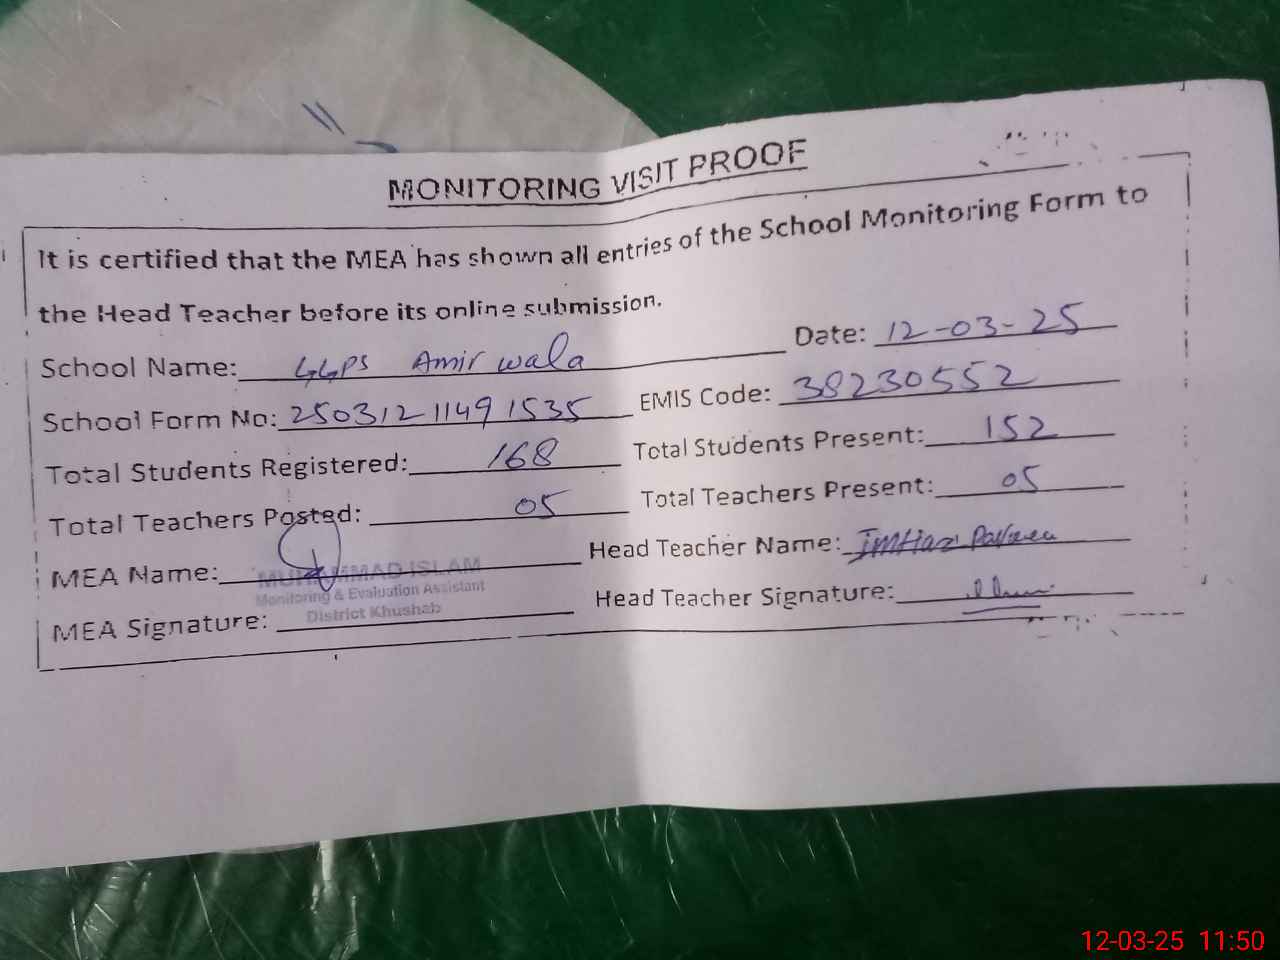 MONITORING VISIT PROOF
It is certified that the MEA has shown all entries of the School Monitoring Form to
the Head Teacher before its online submission.
School Name: GGPS Amir wala Date: 12-03-25
School Form No: 25031211491535 EMIS Code: 38230552
Total Students Registered: 168 Total Students Present: 152
Total Teachers Posted: 05 Total Teachers Present: 05
MEA Name: MUHAMMAD ISLAM Head Teacher Name: Imtiaz Parveen
Monitoring & Evaluation Assistant
District Khushab
MEA Signature: Head Teacher Signature:
12-03-25 11:50